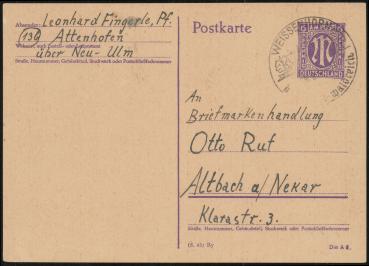 Absender: Leonhard Fingerle, Pf.
(13b) Attenhofen
Wohnort, auch Zustell- oder Leitpostamt
über Neu-Ulm
Straße, Hausnummer, Gebäudeteil, Stockwerk oder Postschließfachnummer
Postkarte
WEISSENHORN
DEUTSCHLAND
An
Briefmarkenhandlung
Otto Ruf
Altbach a/Nekar
Klarastr. 3.
Straße, Hausnummer, Gebäudeteil, Stockwerk oder Postschließfachnummer
Din A 6.